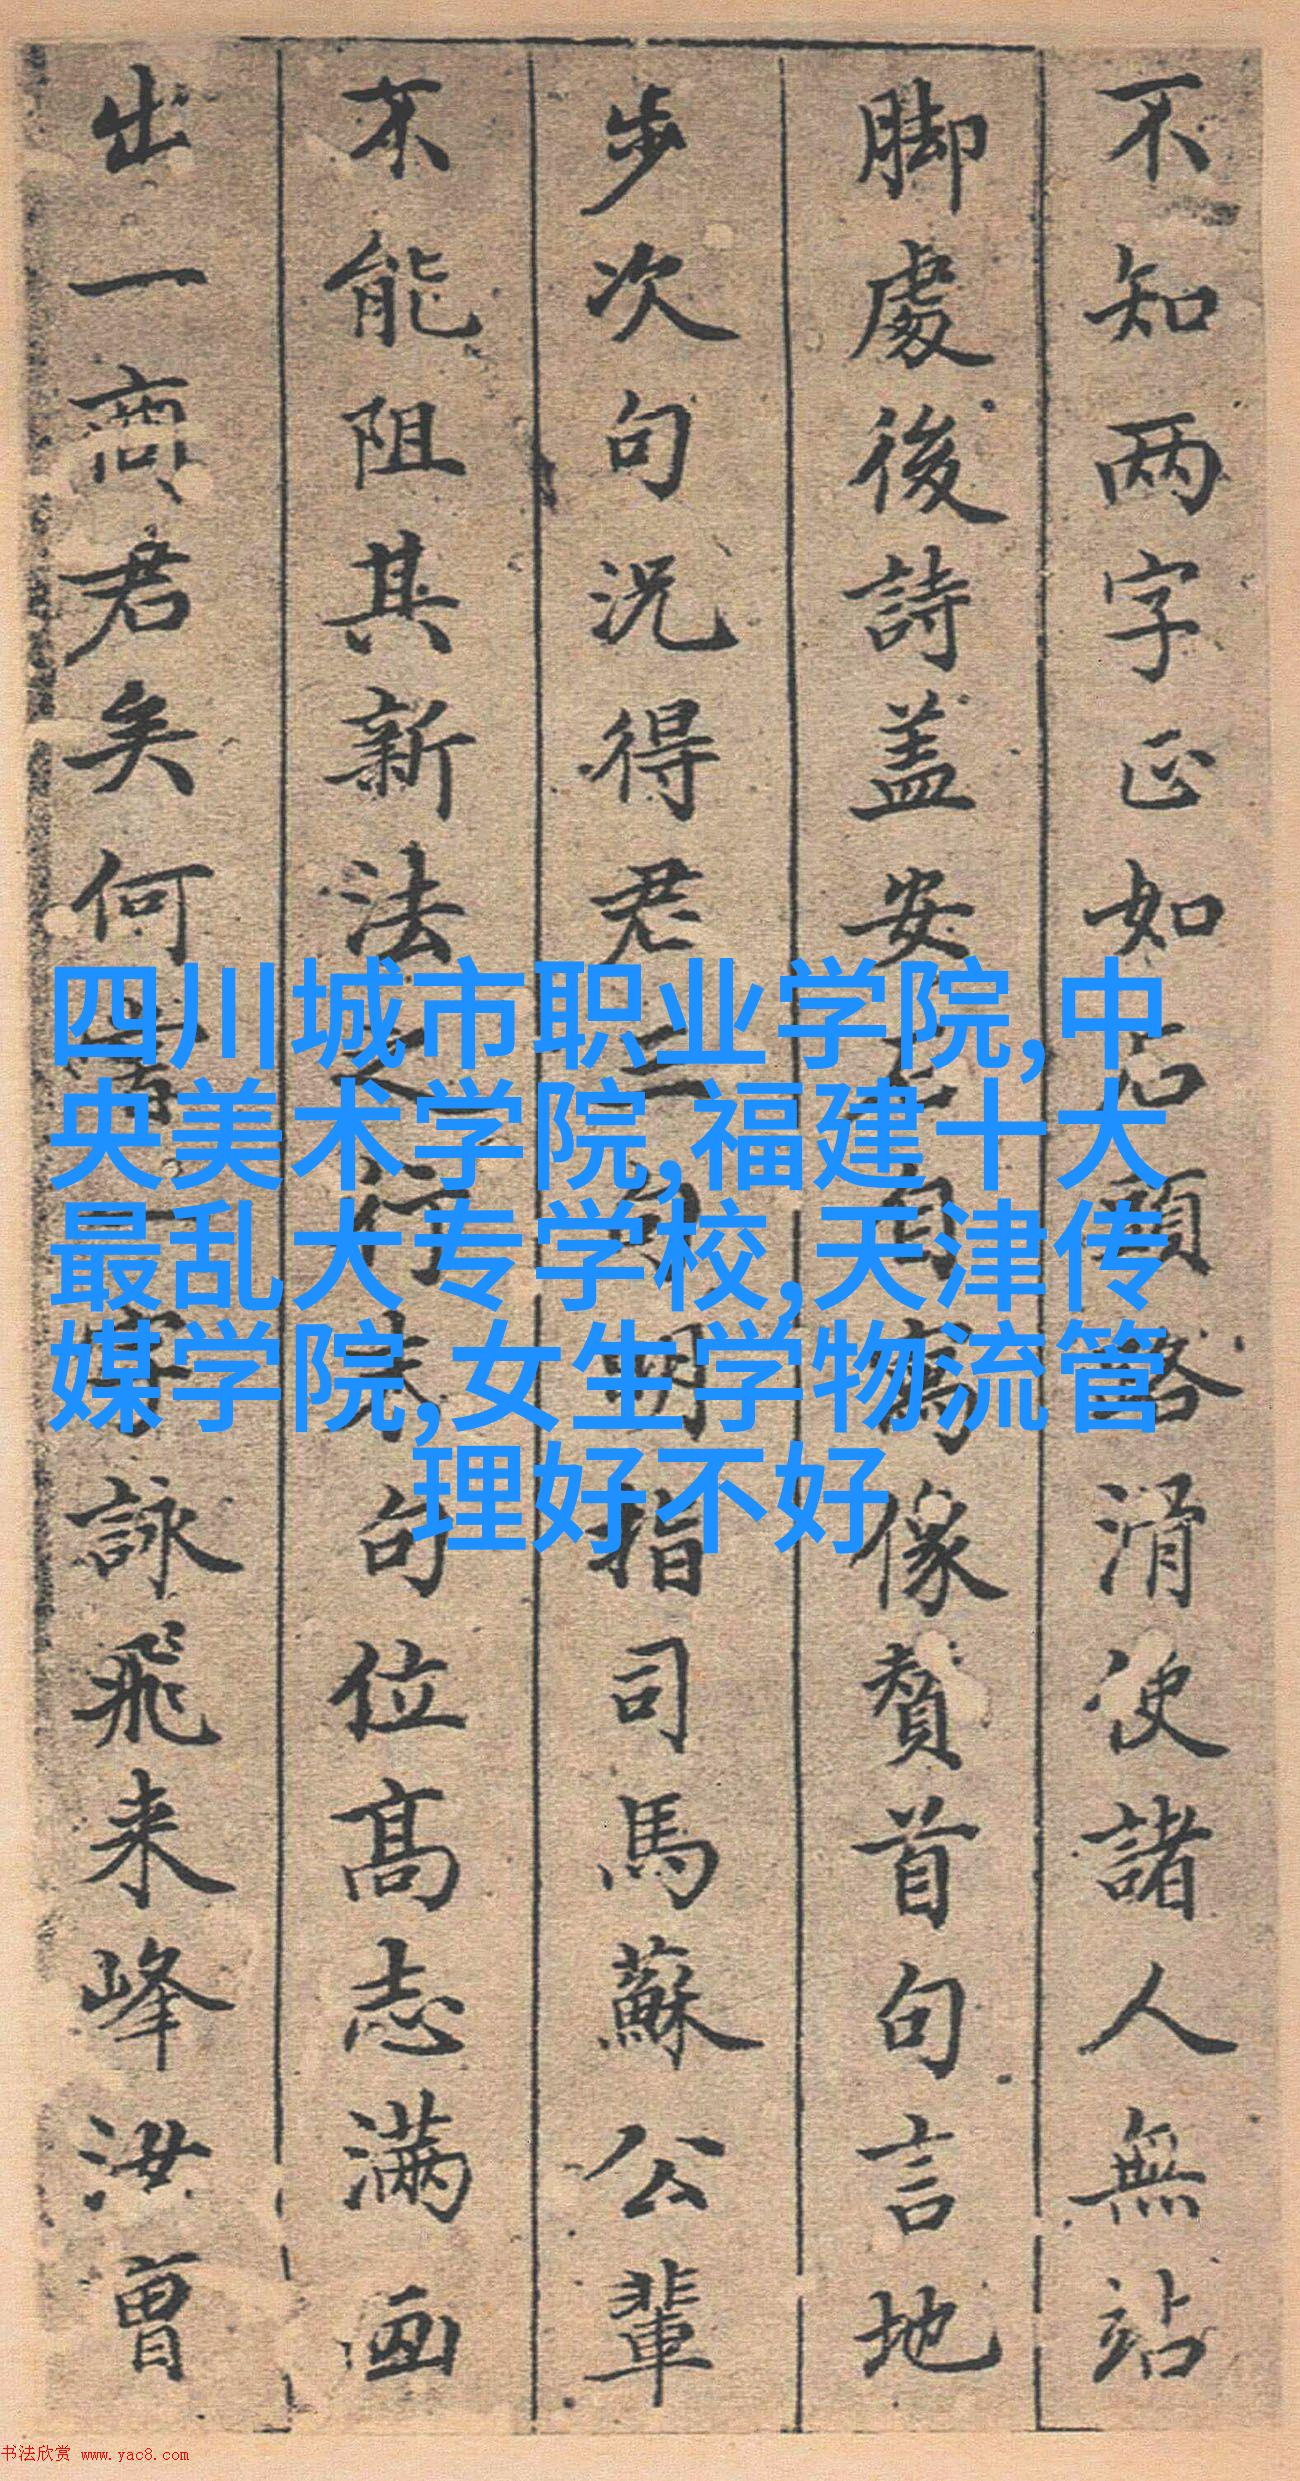 不知两字正如石頭路滑使諸人無站
脚處後詩盖安石自寓像贊首句言地
步次句況得君三句明指司馬蘇公輩
不能阻其新法之行末句位高志满画
出一商君矣何言一字詠飛来峰汝曾
四川城市职业学院,中
央美术学院,福建十大
最乱大专学校,天津传
媒学院,女生学物流管
理好不好
书法欣赏 www.yac8.com